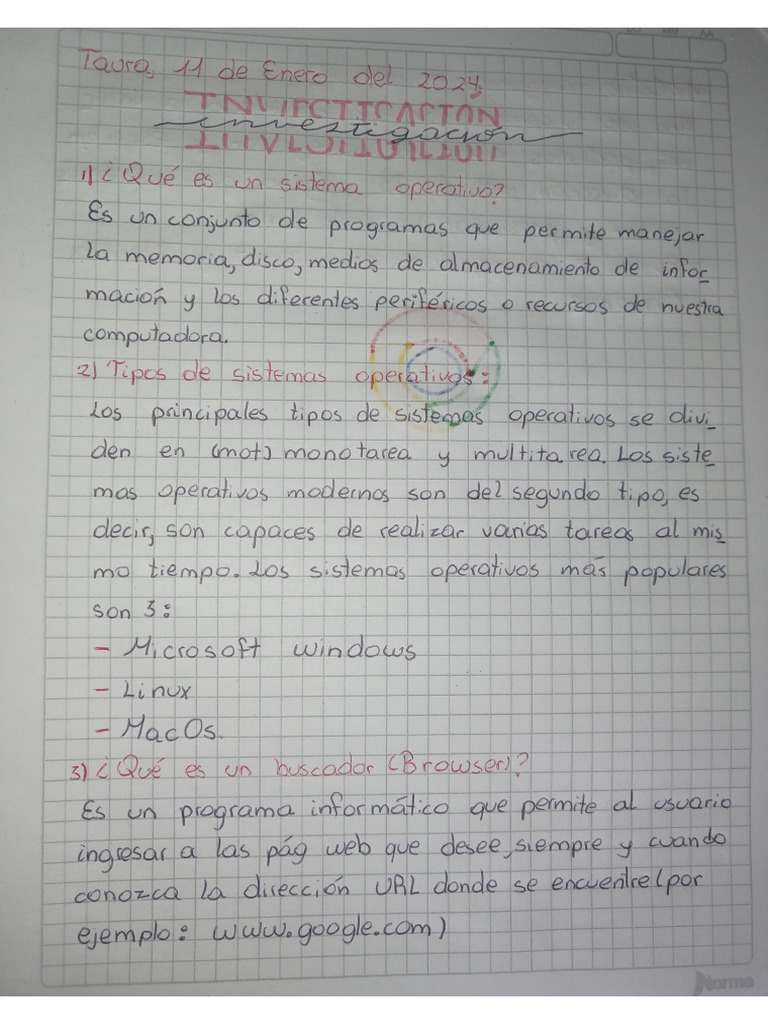 Taura, 11 de Enero del 2024
INVESTIGACIÓN
investigación
1) ¿Qué es un sistema operativo?
Es un conjunto de programas que permite manejar
la memoria, disco, medios de almacenamiento de infor-
mación y los diferentes periféricos o recursos de nuestra
computadora.
2) Tipos de sistemas operativos:
Los principales tipos de sistemas operativos se divi-
den en (mot) monotarea y multitarea. Los siste-
mas operativos modernos son del segundo tipo, es
decir, son capaces de realizar varias tareas al mis-
mo tiempo. Los sistemas operativos más populares
son 3:
- Microsoft windows
- Linux
- MacOs.
3) ¿Qué es un buscador (Browser)?
Es un programa informático que permite al usuario
ingresar a las pág web que desee, siempre y cuando
conozca la dirección URL donde se encuentre (por
ejemplo: www.google.com)
Norma